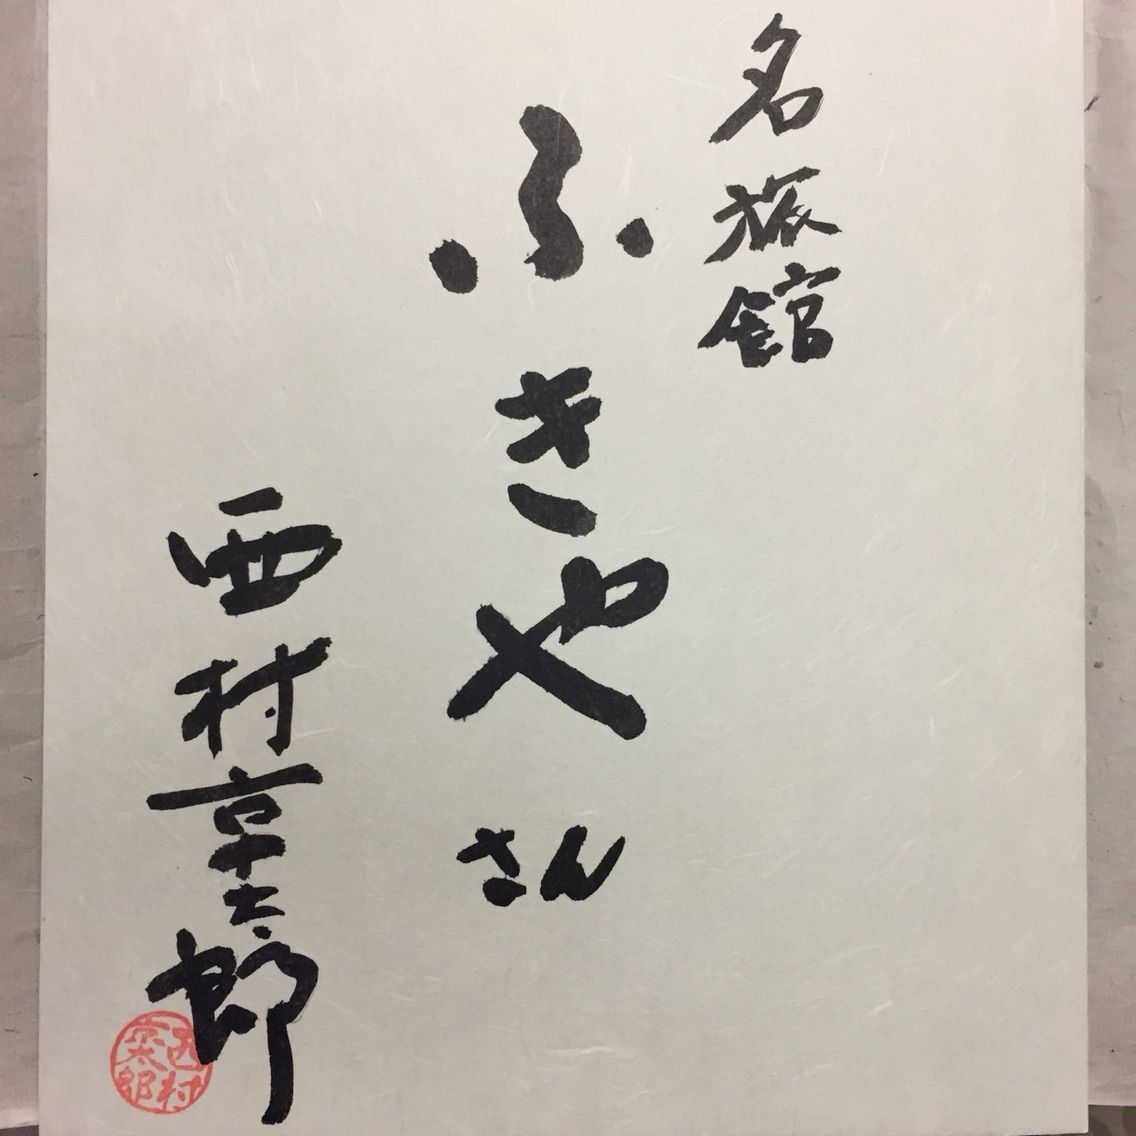 名旅館
ふきや
さん
西村京太郎
西村
京太郎